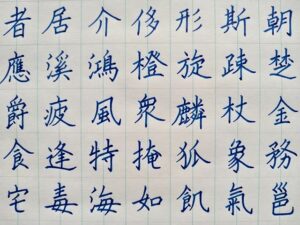 者居介侈形斯朝
應溪鴻橙旋疎楚
爵疲風衆麟杖金
食逢特掩狐象務
宅毒海如飢氣邕